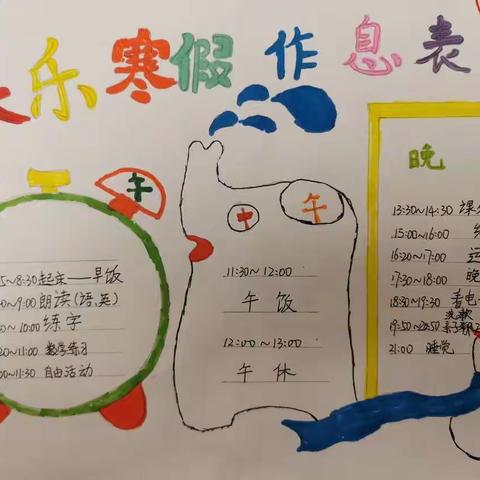 乐寒假作息表
午
5~8:30起床——早饭
0~9:00朗读(语.英)
0~10:00练字
20~11:00数学练习
:00~11:30自由活动
中午
11:30~12:00
午饭
12:00~13:00
午休
晚
13:30~14:30
15:00~16:00
16:20~17:00
17:30~18:00晚
18:30~19:30看电
洗漱
19:50~20:50亲子
21:00睡觉